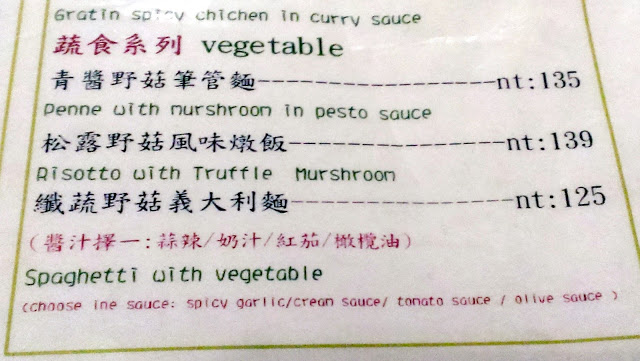 Gratin spicy chichen in curry sauce
蔬食系列 vegetable
青醬野菇筆管麵-----------------nt:135
Penne with murshroom in pesto sauce
松露野菇風味燉飯---------------nt:139
Risotto with Truffle Murshroom
纖蔬野菇義大利麵---------------nt:125
(醬汁擇一:蒜辣/奶汁/紅茄/橄欖油)
Spaghetti with vegetable
(choose ine sauce: spicy garlic/crean sauce/ tonato sauce / olive sauce )